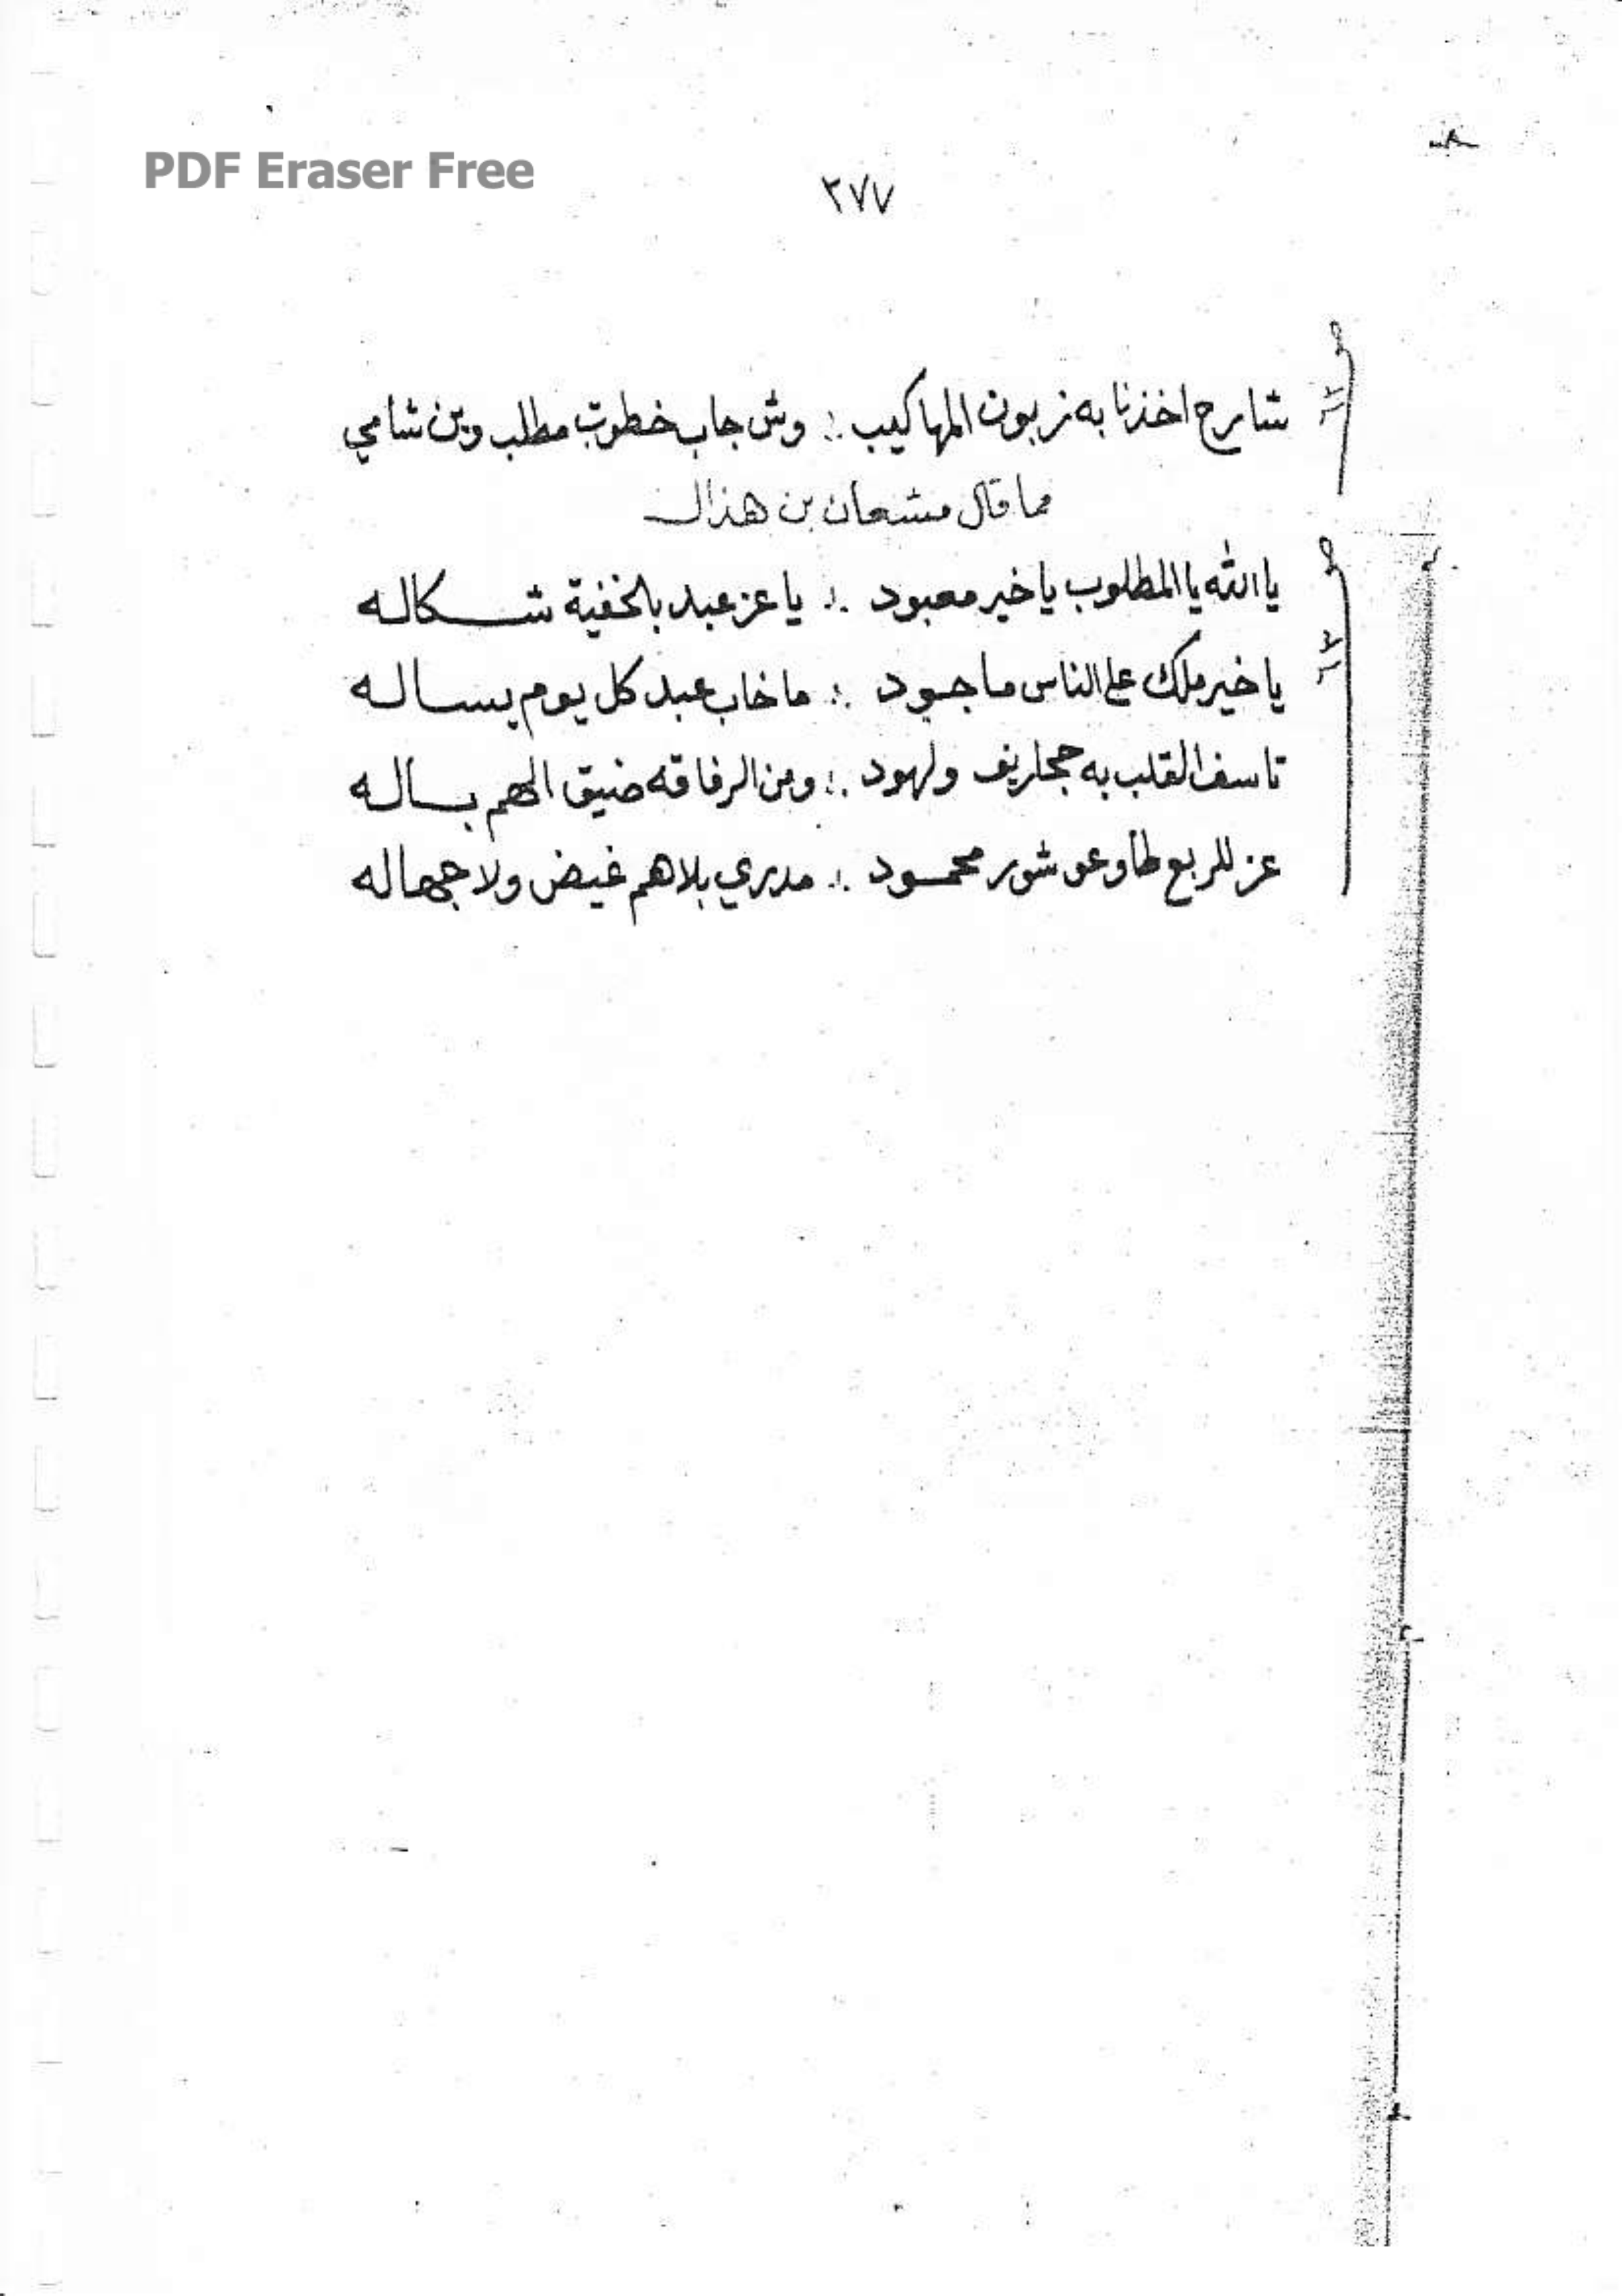 PDF Eraser Free
٢٧٧
شارح اخذنا به زبون المهاكيب ∴ وش جاب خطوت مطلب وبن شامي
مما قال مشعان بن هذال
يا الله يا المطلوب يا خير معبود ∴ يا عز عبد بالخفية شكاله
يا خير ملك على الناس ماجود ∴ ما خاب عبد كل يوم يساله
تاسف القلب به حجاريف ولهود ∴ ومن الرفاقه ضيق الهم باله
عز للربع طاوعو شور محمود ∴ مدري بلاهم غيض ولا جهاله